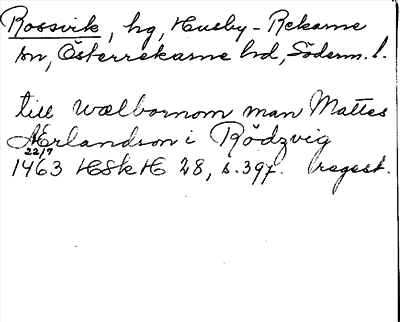 Rossvik, hg, Husby-Rekarne
sn, Österrekarne hd, Söderm. l.
till wælbornom man Mattes
Ærlandson i Rödzvig
22/7
1463 HSkH 28, s. 397. regest.